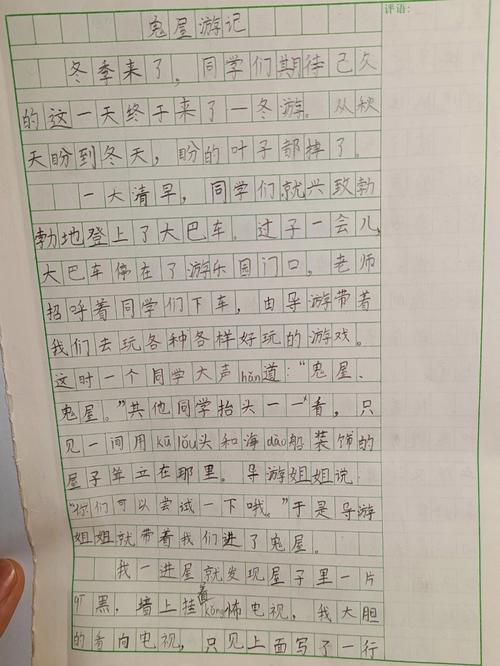 评语:
鬼屋游记
冬季来了，同学们期待己久
的这一天终于来了一冬游。从秋
天盼到冬天，盼的叶子都掉了。
一大清早，同学们就兴致勃
勃地登上了大巴车。过子一会儿，
大巴车停在了游乐园门口，老师
招呼着同学们下车，由导游带着
我们去玩各种各样好玩的游戏。
这时一个同学大声hǎn道：“鬼屋、
鬼屋。”其他同学抬头一一看，只
见一间用kū lóu头和海dào船装饰的
屋子耸立在那里。导游姐姐说：
“你们可以尝试一下哦。”于是导游
姐姐就带着我们进了鬼屋。
我一进屋就发现屋子里一片
黑，墙上挂着kǒng怖电视，我大胆
的看向电视，只见上面写了一行